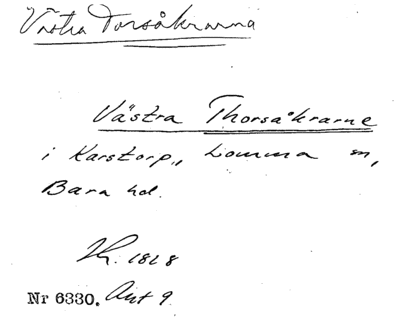 Västra Torsåkrarna
Västra Thorsåkrarne
i Karstorp,, Lomma sn,
Bara hd.
1818
Nr 6330. Akt 9.